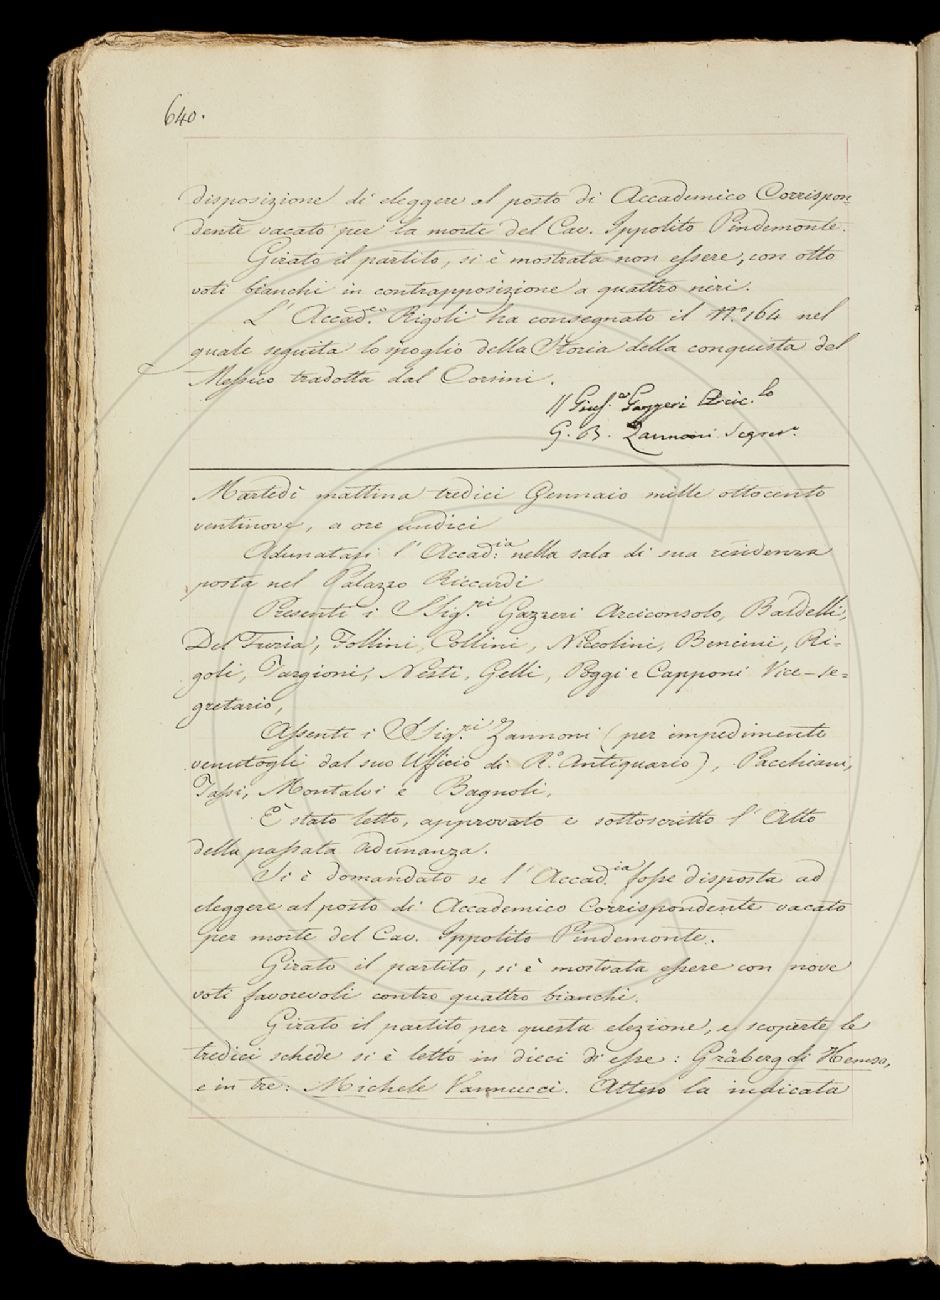 640.
disposizione di eleggere al posto di Accademico Corrispon=
dente vacato per la morte del Cav. Ippolito Pindemonte.
Girato il partito, si è mostrata non essere, con otto
voti bianchi in contrapposizione a quattro neri.
L'Accad.co Rigoli ha consegnato il N.° 164 nel
quale seguita lo spoglio della Storia della conquista del
Messico tradotta dal Corsini.
Gius.e Gazzeri Arcic.lo
G. B. Zannoni Segret.o
Martedì mattina tredici Gennaio mille ottocento
ventinove, a ore undici
Adunatasi l'Accad.ia nella sala di sua residenza
posta nel Palazzo Riccardi
Presenti i SSig.ri Gazzeri Arciconsolo, Baldelli,
Del Furia, Follini, Collini, Niccolini, Bencini, Ri=
goli, Targioni, Nesti, Gelli, Poggi e Capponi Vice-se=
gretario,
Assenti i SSig.ri Zannoni (per impedimento
venutogli dal suo Ufficio di R.° Antiquario), Pacchiani,
Tassi, Montalvi e Bagnoli.
È stato letto, approvato e sottoscritto l'Atto
della passata adunanza.
Si è domandato se l'Accad.ia fosse disposta ad
eleggere al posto di Accademico Corrispondente vacato
per morte del Cav. Ippolito Pindemonte.
Girato il partito, si è mostrata essere con nove
voti favorevoli contro quattro bianchi.
Girato il partito per questa elezione, e scoperte le
tredici schede si è letto in dieci di esse: Gräberg di Hemso,
e in tre: Michele Vannucci. Atteso la indicata